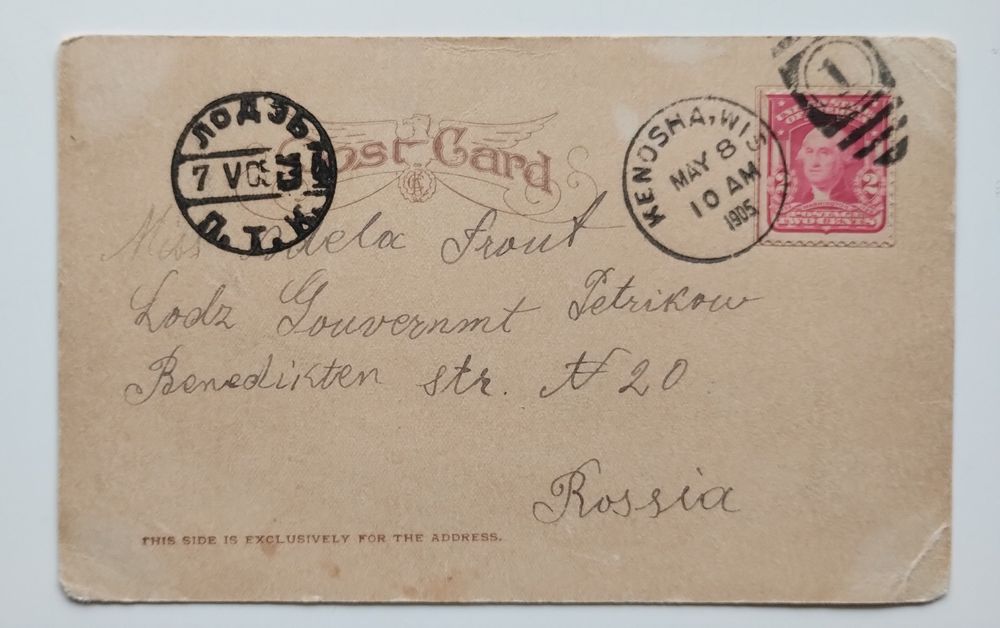 ЛОДЗЬ
7 V 05
П. Т. К.
Post Card
KENOSHA, WIS
MAY 8
10 AM
1905
1
UNITED STATES
OF AMERICA
2 2
POSTAGE
TWO CENTS
Miss Adela Frout
Lodz Gouvernmt Petrikow
Benedikten str. N 20
Rossia
THIS SIDE IS EXCLUSIVELY FOR THE ADDRESS.